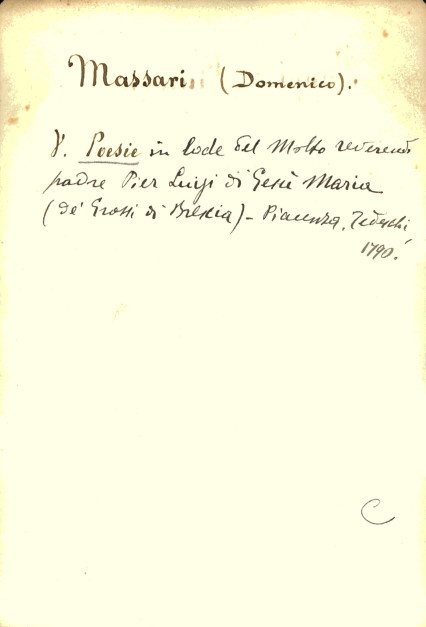 Massari (Domenico).
V. Poesie in lode del Molto reverendo
padre Pier Luigi di Gesù Maria
(de' Grossi di Brescia) - Piacenza, Tedeschi
1790.
C